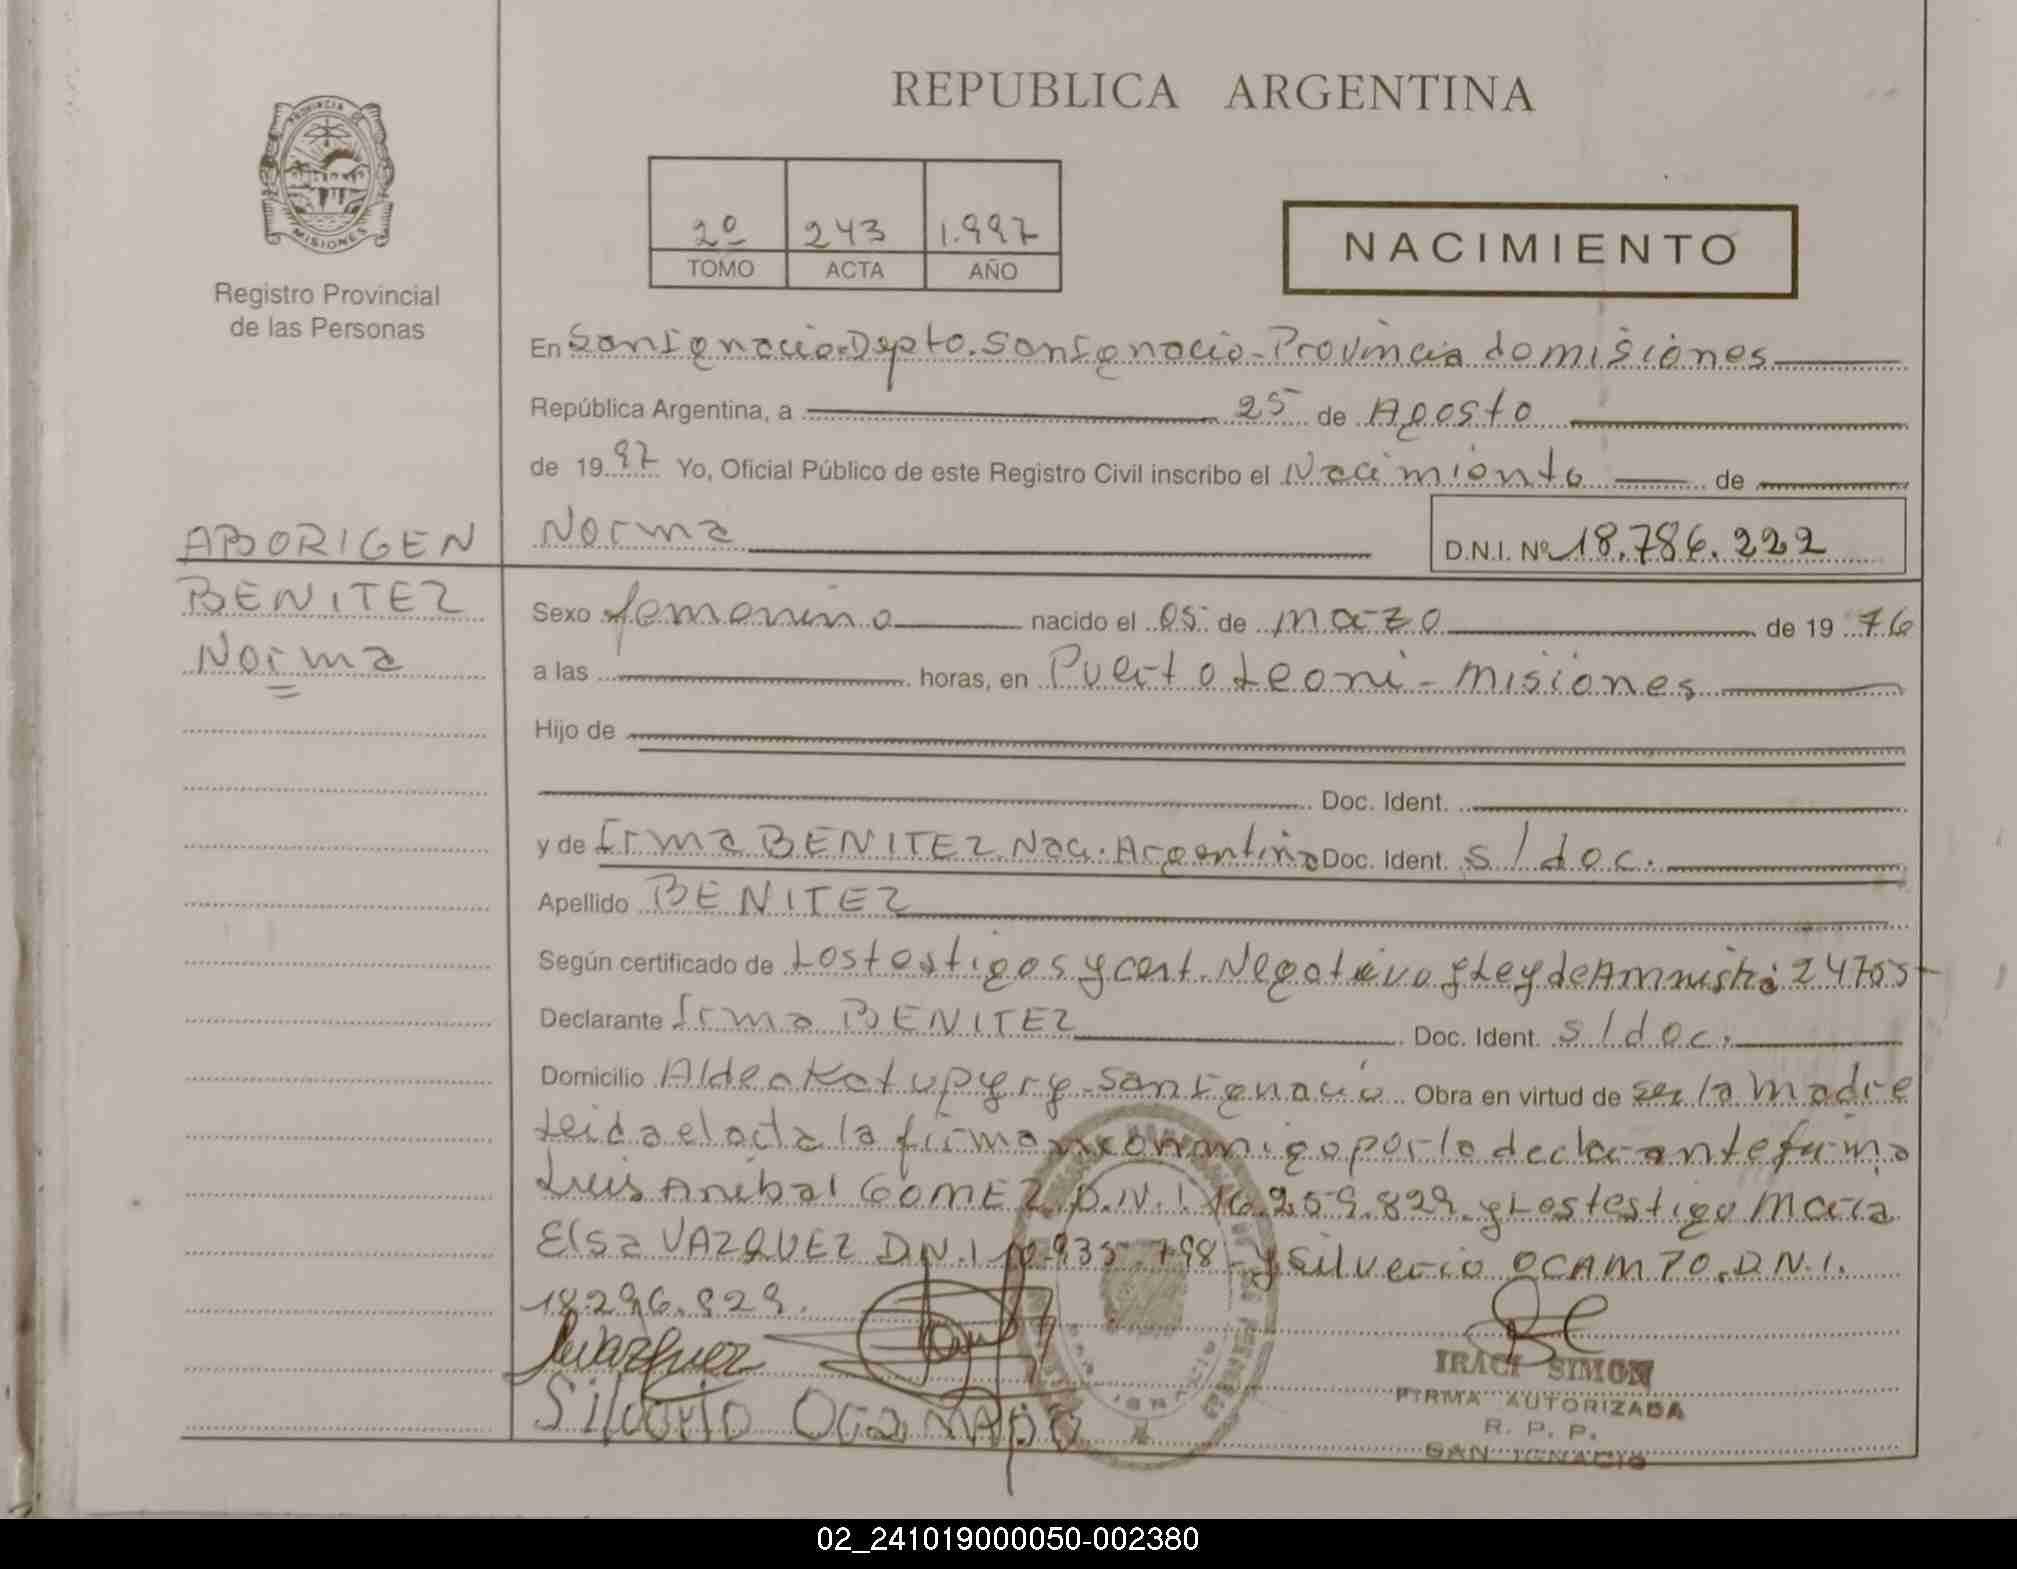 REPUBLICA ARGENTINA
PROVINCIA DE
MISIONES
Registro Provincial
de las Personas
2º 243 1.997
TOMO ACTA AÑO
NACIMIENTO
En San Ignacio - Depto. San Ignacio - Provincia de misiones
República Argentina, a 25 de Agosto
de 1997 Yo, Oficial Público de este Registro Civil inscribo el Nacimiento de
ABORIGEN
BENITEZ
Norma
Norma
D.N.I. Nº 18.786.222
Sexo femenino nacido el 05 de marzo de 1976
a las horas, en Puerto Leoni - Misiones
Hijo de
Doc. Ident.
y de Irma BENITEZ Nac. Argentina Doc. Ident. s/doc.
Apellido BENITEZ
Según certificado de Los testigos y cert. Negativo y Ley de Amnisti 24755
Declarante Irma BENITEZ Doc. Ident. s/doc.
Domicilio Aldea Katupyry - San Ignacio Obra en virtud de ser la madre
Leida el acta la firma conmigo por la declarante firma
Luis Anibal GOMEZ D.N.I 16.259.829. y Los testigo Maria
Elsa VAZQUEZ D.N.I 10.935.798 - y Silverio OCAMPO. D.N.I.
18.296.829.
Silverio Ocamapo
IRACI SIMON
FIRMA AUTORIZADA
R. P. P.
SAN IGNACIO
02_241019000050-002380